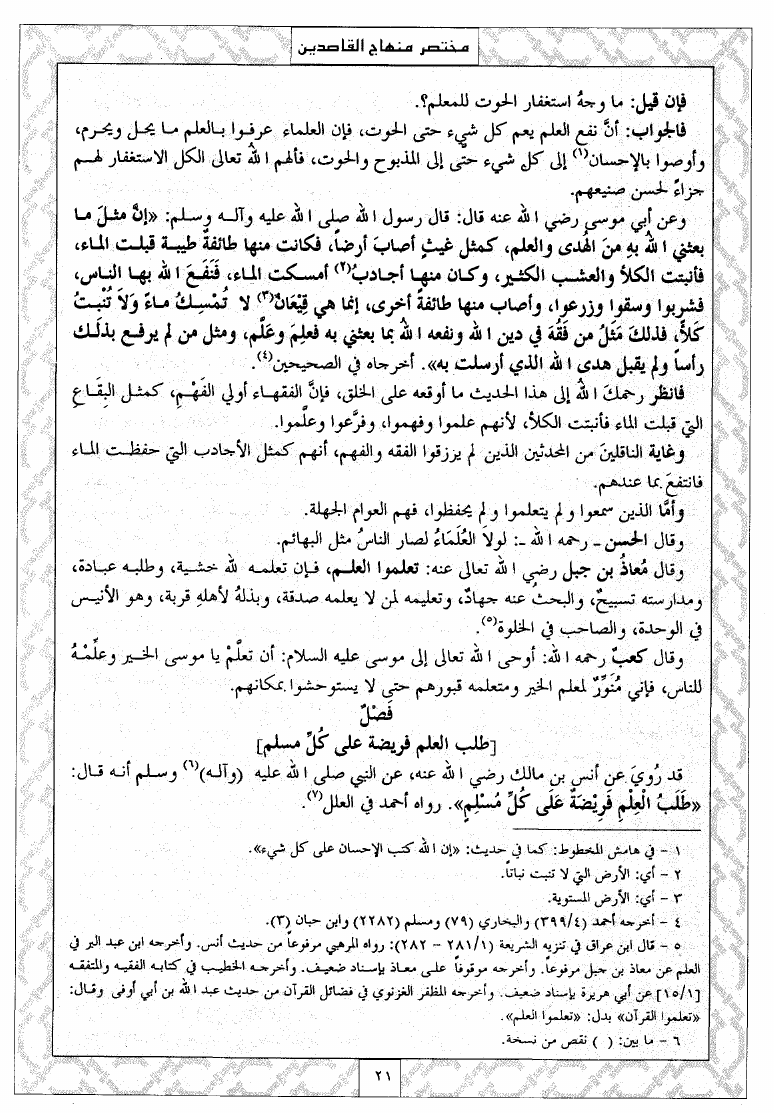 مختصر منهاج القاصدين
فإن قيل: ما وجهُ استغفار الحوت للمعلم؟.
فالجواب: أنَّ نفع العلم يعم كل شيء حتى الحوت، فإن العلماء عرفوا بالعلم ما يحل ويحرم،
وأوصوا بالإحسان(١) إلى كل شيء حتَّى إلى المذبوح والحوت، فألهم الله تعالى الكل الاستغفار لهم
جزاءً لحسن صنيعهم.
وعن أبي موسى رضي الله عنه قال: قال رسول الله صلى الله عليه وآله وسلم: «إنَّ مثلَ ما
بعثني الله بهِ منَ الهُدى والعلم، كمثل غيثٍ أصابَ أرضاً، فكانت منها طائفةٌ طيبة قبلت الماء،
فأنبتت الكلأ والعشب الكثير، وكان منها أجادبُ(٢) أمسكت الماء، فَنَفَعَ الله بها الناس،
فشربوا وسقوا وزرعوا، وأصاب منها طائفةً أخرى، إنما هي قِيْعَانٌ(٣) لا تُمْسِكُ ماءً وَلاَ تُنْبِتُ
كلأً، فذلكَ مَثَلُ من فَقُهَ في دين الله ونفعه الله بما بعثني به فعلِمَ وعَلَّم، ومثل من لم يرفع بذلك
رأساً ولم يقبل هدى الله الذي أرسلت به». أخرجاه في الصحيحين(٤).
فانظر رحمكَ اللهُ إلى هذا الحديث ما أوقعه على الخلق، فإنَّ الفقهاء أولي الفَهْمِ، كمثل البِقَاعِ
التي قبلت الماء فأنبتت الكلأ، لأنهم علموا وفهموا، وفرَّعوا وعلَّموا.
وغاية الناقلينَ من المحدثين الذين لم يرزقوا الفقه والفهم، أنهم كمثل الأجادب التي حفظت الماء
فانتفعَ بما عندهم.
وأمَّا الذين سمعوا ولم يتعلموا ولم يحفظوا، فهم العوام الجهلة.
وقال الحسن ـ رحمه الله ـ: لولاَ العُلَمَاءُ لصار الناسُ مثل البهائم.
وقال مُعاذُ بن جبل رضي الله تعالى عنه: تعلموا العلم، فإن تعلمه لله خشية، وطلبه عبادة،
ومدارسته تسبيحٌ، والبحثُ عنه جهادٌ، وتعليمه لمن لا يعلمه صدقة، وبذلهُ لأهلهِ قربة، وهو الأنيس
في الوحدة، والصاحب في الخلوة(٥).
وقال كعبٌ رحمه الله: أوحى الله تعالى إلى موسى عليه السلام: أن تعلَّمْ يا موسى الخير وعلِّمْهُ
للناس، فإني مُنَوِّرٌ لمعلم الخير ومتعلمه قبورهم حتى لا يستوحشوا بمكانهم.
فَصْلٌ
[طلب العلم فريضة على كُلِّ مسلم]
قد رُوِيَ عن أنس بن مالك رضي الله عنه، عن النبي صلى الله عليه (وآله)(٦) وسلم أنه قال:
«طَلَبُ العِلْمِ فَرِيْضَةٌ عَلَى كُلِّ مُسْلِمٍ». رواه أحمد في العلل(٧).
١ - في هامش المخطوط: كما في حديث: «إن الله كتب الإحسان على كل شيء».
٢ - أي: الأرض التي لا تنبت نباتاً.
٣ - أي: الأرض المستوية.
٤ - أخرجه أحمد (٣٩٩/٤) والبخاري (٧٩) ومسلم (٢٢٨٢) وابن حبان (٣).
٥ - قال ابن عراق في تنزيه الشريعة (٢٨١/١ - ٢٨٢): رواه المرهبي مرفوعاً من حديث أنس. وأخرجه ابن عبد البر في
العلم عن معاذ بن جبل مرفوعاً. وأخرجه موقوفاً على معاذ بإسناد ضعيف. وأخرجه الخطيب في كتابه الفقيه والمتفقه
[١٥/١] عن أبي هريرة بإسناد ضعيف. وأخرجه المظفر الغزنوي في فضائل القرآن من حديث عبد الله بن أبي أوفى وقال:
«تعلموا القرآن» بدل: «تعلموا العلم».
٦ - ما بين: ( ) نقص من نسخة.
٢١